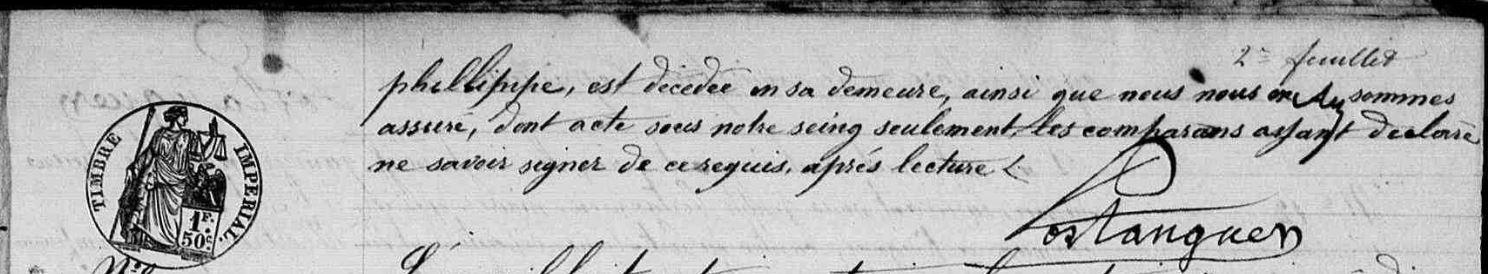 2e feuillet
phillippe, est décédée en sa demeure, ainsi que nous nous en sommes
assuré, dont acte sous notre seing seulement, les comparans ayant declaré
ne savoir signer de ce requis, après lecture
TIMBRE IMPERIAL.
1F.
50c.
Costanguen
N°